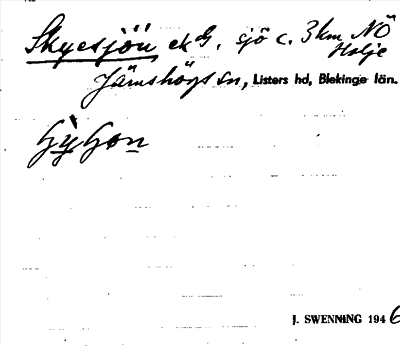 Skyesjön ek G. sjö c. 3 km NÖ
Holje
Jämshögs sn, Listers hd, Blekinge län.
J. SWENNING 1946